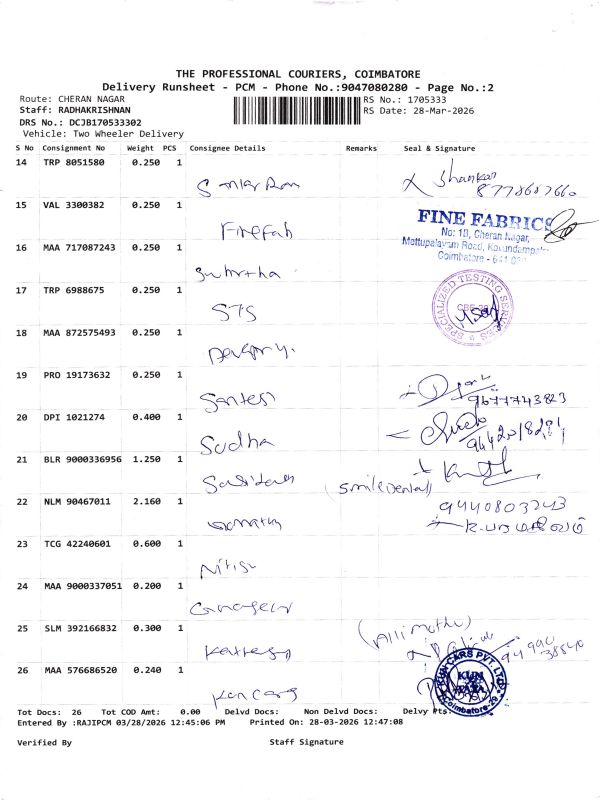 THE PROFESSIONAL COURIERS, COIMBATORE
Delivery Runsheet - PCM - Phone No.:9047080280 - Page No.:2
Route: CHERAN NAGAR
RS No.: 1705333
Staff: RADHAKRISHNAN
RS Date: 28-Mar-2026
DRS No.: DCJB170533302
Vehicle: Two Wheeler Delivery
S No Consignment No Weight PCS Consignee Details Remarks Seal & Signature
14 TRP 8051580 0.250 1
Shankar
8778687660
15 VAL 3300382 0.250 1
FINE FABRICS
No: 1B, Cheran Nagar,
Mettupalayam Road, Koundampalayam
Coimbatore - 641 030
16 MAA 717087243 0.250 1
17 TRP 6988675 0.250 1
STS
SPECIALIZED TESTING SERVICES
18 MAA 872575493 0.250 1
19 PRO 19173632 0.250 1
Santesh
9677743823
20 DPI 1021274 0.400 1
Sudha
21 BLR 9000336956 1.250 1
(Smile Dental)
22 NLM 90467011 2.160 1
9440803243
23 TCG 42240601 0.600 1
Nitish
24 MAA 9000337051 0.200 1
25 SLM 392166832 0.300 1
26 MAA 576686520 0.240 1
Kun Cars
KUN CARS PVT. LTD.
Coimbatore-29
Tot Docs: 26 Tot COD Amt: 0.00 Delvd Docs: Non Delvd Docs: Delvy Pts:
Entered By :RAJIPCM 03/28/2026 12:45:06 PM Printed On: 28-03-2026 12:47:08
Verified By Staff Signature